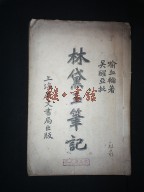 喻血輪著
吳醒亞批
林黛玉筆記
上海文書局出版